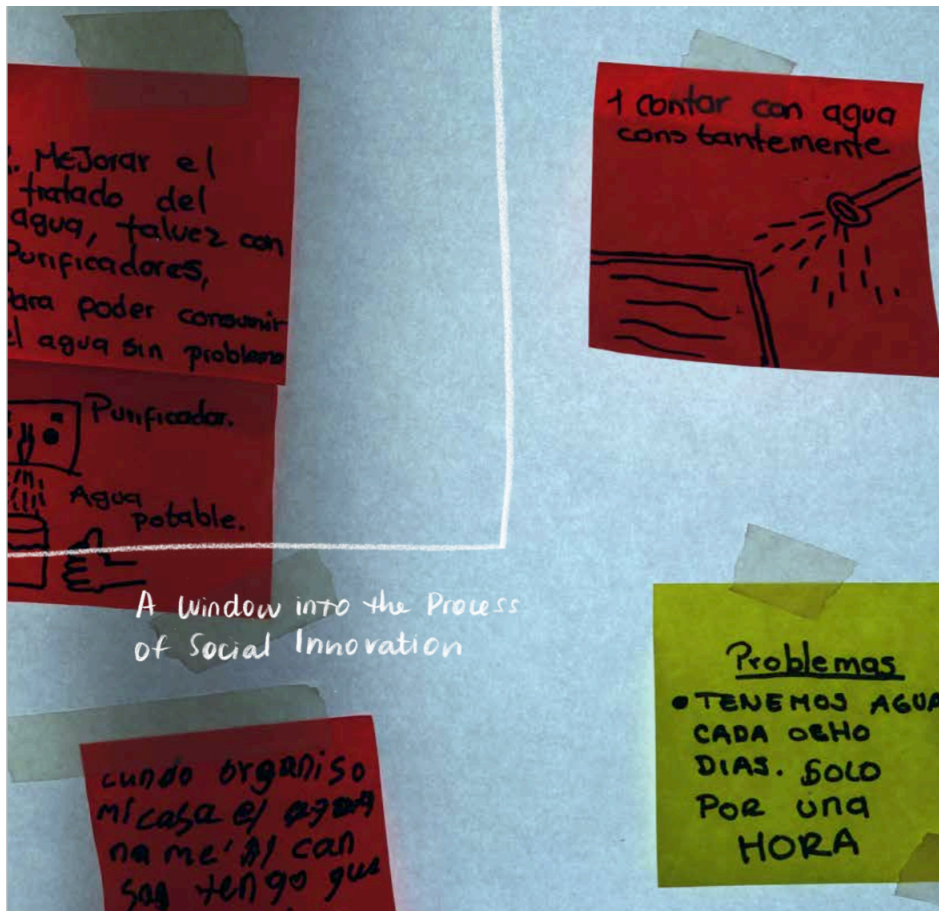 Mejorar el
tratado del
agua, talvez con
Purificadores,
Para poder consumir
el agua sin problema
Purificador.
Agua
potable.
1 contar con agua
constantemente
A Window into the Process
of Social Innovation
Problemas
• TENEMOS AGUA
CADA OCHO
DIAS. SOLO
POR una
HORA
cundo organiso
mi casa el
na me
tengo que